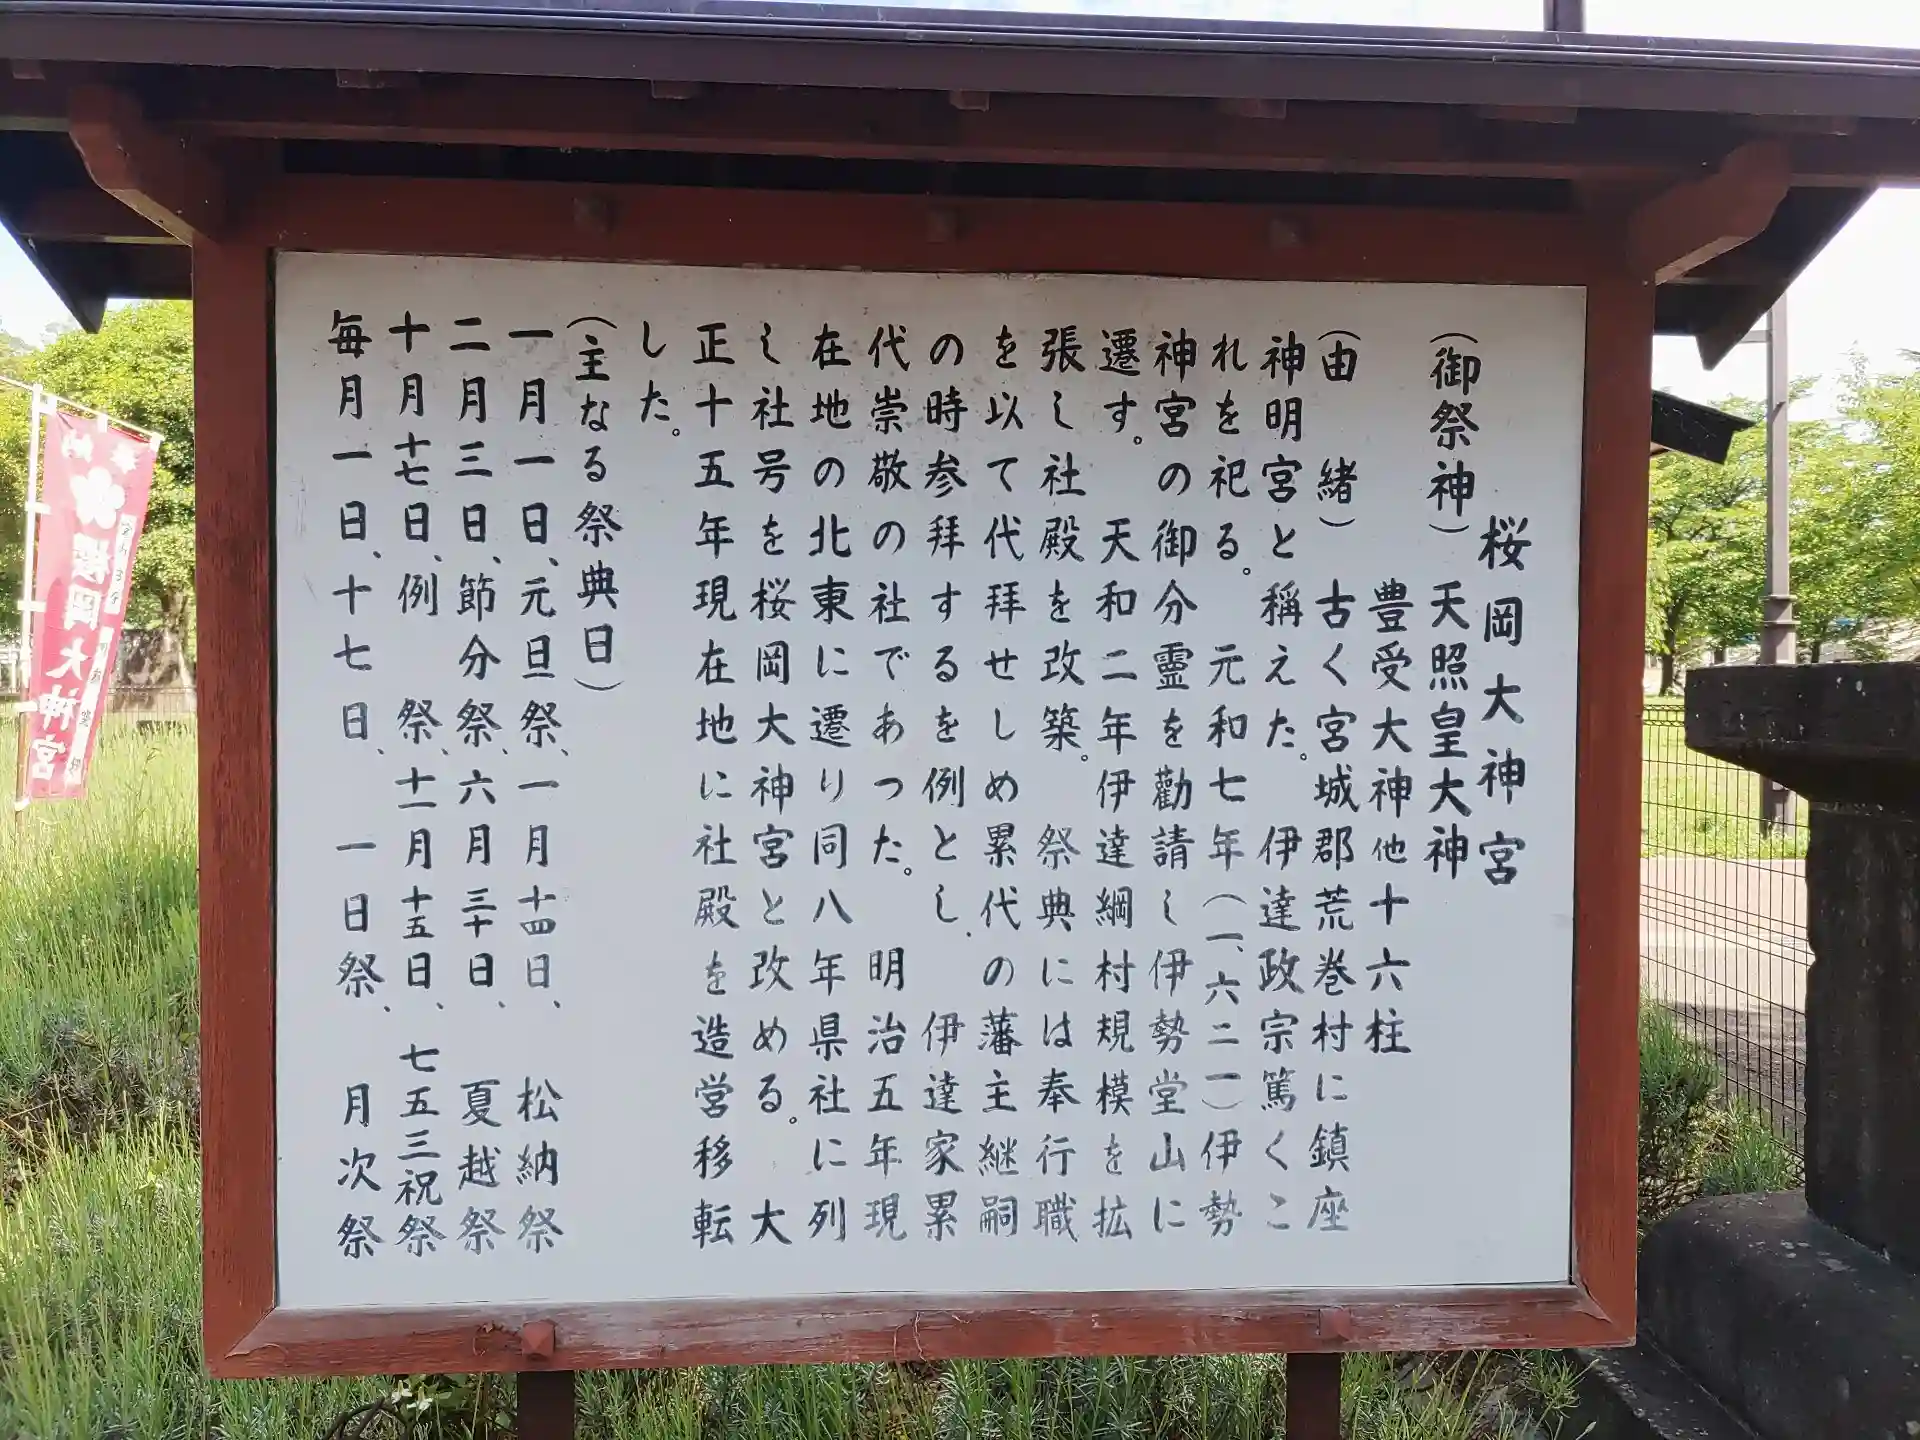 桜岡大神宮
(御祭神) 天照皇大神
豊受大神他十六柱
(由 緒) 古く宮城郡荒巻村に鎮座
神明宮と稱えた。 伊達政宗篤くこ
れを祀る。 元和七年(一、六二一)伊勢
神宮の御分霊を勸請し伊勢堂山に
遷す。 天和二年伊達綱村規模を拡
張し社殿を改築。 祭典には奉行職
を以て代拜せしめ累代の藩主継嗣
の時参拜するを例とし、 伊達家累
代崇敬の社であつた。 明治五年現
在地の北東に遷り同八年県社に列
し社号を桜岡大神宮と改める。 大
正十五年現在地に社殿を造営移転
した。
(主なる祭典日)
一月一日、元旦祭、一月十四日、 松納祭
二月三日、節分祭、六月三十日、 夏越祭
十月十七日、例 祭、十一月十五日、七五三祝祭
毎月一日、十七日、 一日祭、 月次祭
奉納
櫻岡大神宮